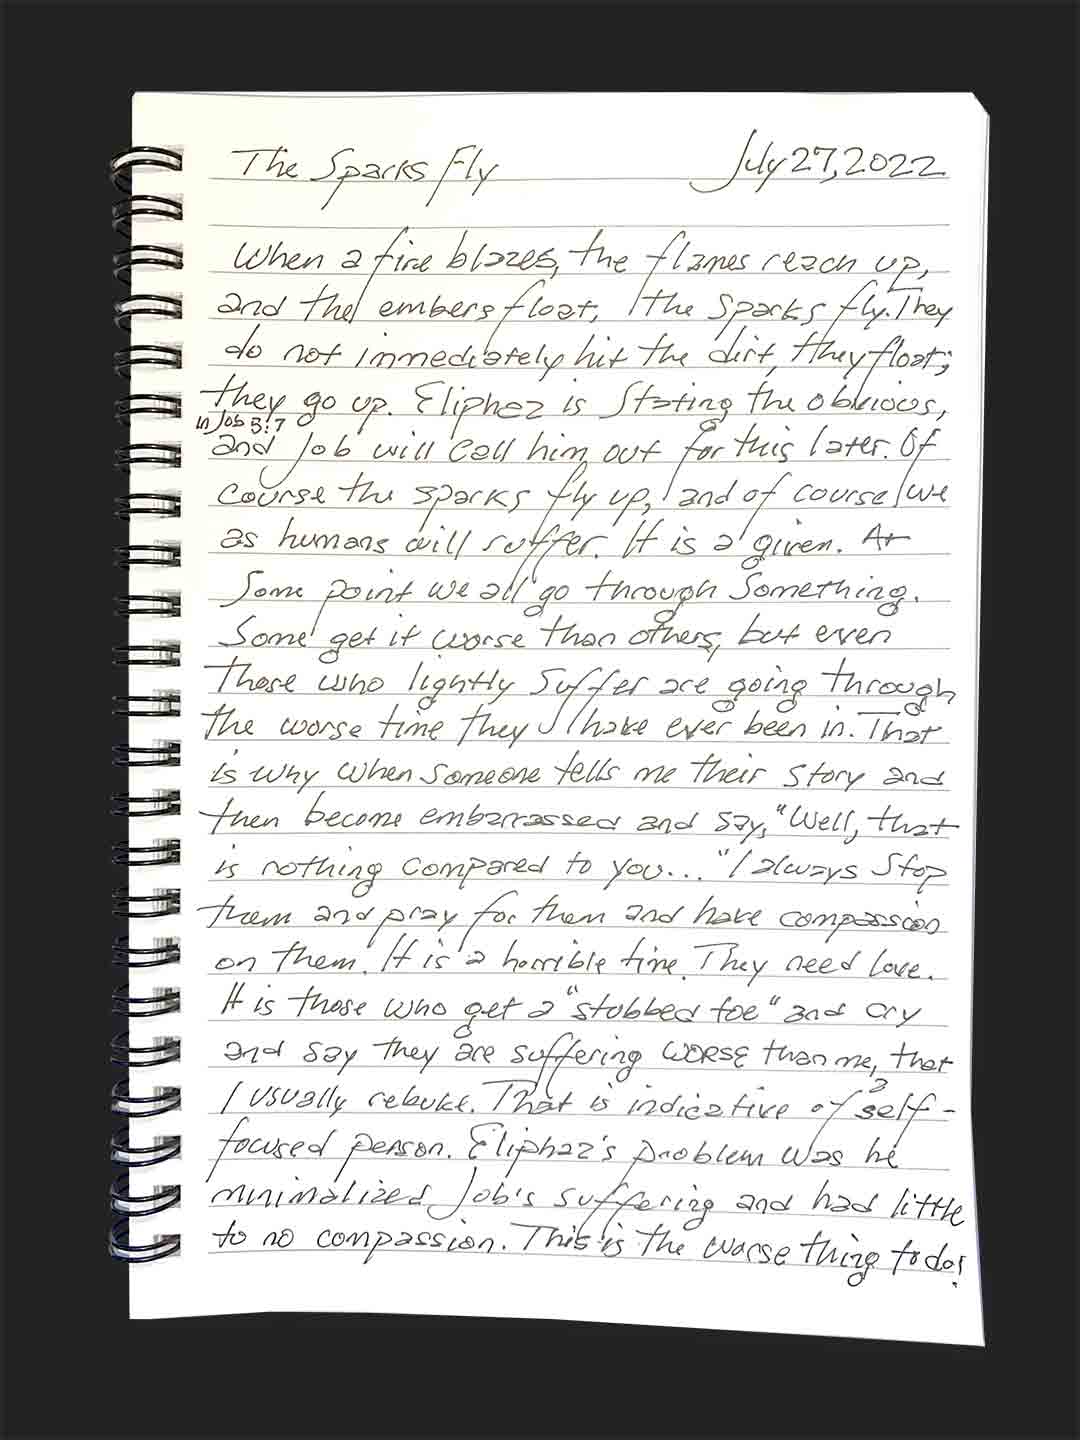 The Sparks Fly July 27, 2022
When a fire blazes, the flames reach up,
and the embers float, the sparks fly. They
do not immediately hit the dirt, they float;
they go up. Eliphaz is stating the obvious,
in Job 5:7
and Job will call him out for this later. Of
course the sparks fly up, and of course we
as humans will suffer. It is a given. At
some point we all go through something.
Some get it worse than others, but even
those who lightly suffer are going through
the worse time they have ever been in. That
is why when someone tells me their story and
then become embarrassed and say, "Well, that
is nothing compared to you..." I always stop
them and pray for them and have compassion
on them. It is a horrible time. They need love.
It is those who get a "stubbed toe" and cry
and say they are suffering WORSE than me, that
I usually rebuke. That is indicative of a self-
focused person. Eliphaz's problem was he
minimalized Job's suffering and had little
to no compassion. This is the worse thing to do!